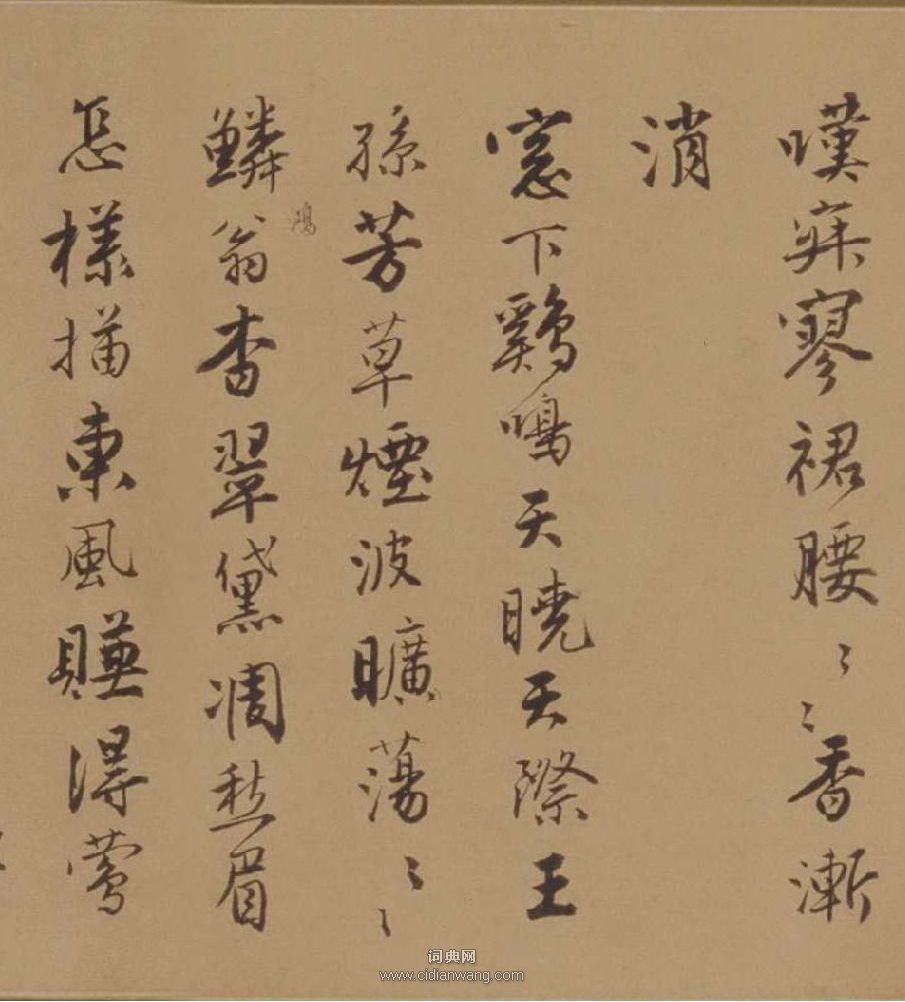 嘆寂寥裙腰〻〻香漸
消
窓下鷄鳴天曉天際王
孫芳草煙波曠蕩〻〻
鱗翁杳翠黛凋愁眉
鴻
怎樣描東風賺得鶯
词典网
www.cidianwang.com